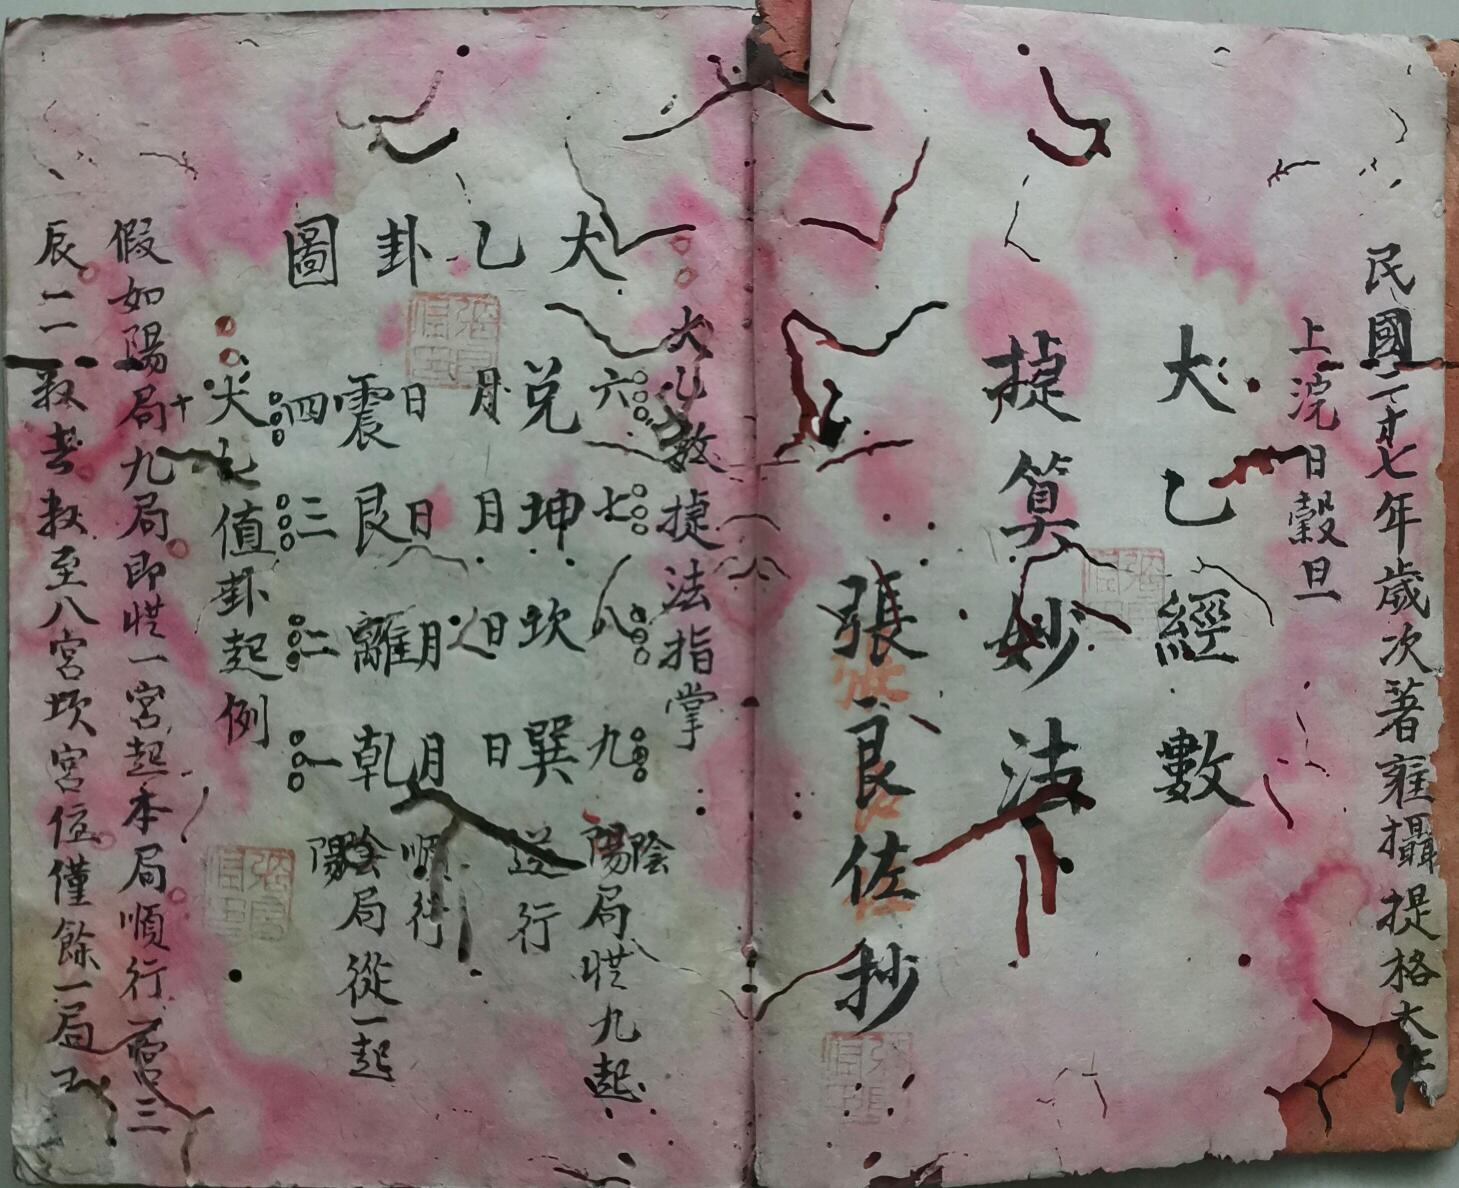 民國二十七年歲次著雍攝提格
上浣日穀旦
太乙經數
捷算妙法
張良佐抄
太乙數捷法指掌
太乙卦圖
六 七 八 九
兌 坤 坎 巽
月 日 日 日
日 日 月 月
震 艮 離 乾
四 三 二 一
陰陽局從九起
逆行
順行
陰陽局從一起
太乙值卦起例
假如陽局九局即從一宮起本局順行二宮三
辰一二數去數至八宮坎宮位僅餘一局